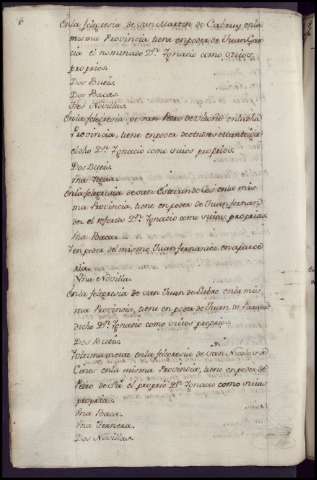 6
En la felegresia de San Martin de Cabruy en la
misma Provincia tiene en poder de Juan Garcia
el nominado Dn. Ignacio como suios
proprios
Dos Bueis
Dos Bacas
Tres Novillas
En la felegresia de San Pedro de en la dha
Provincia, tiene en poder de
el dho Dn. Ignacio como suios proprios
Dos Bueis
Una Yegua
En la felegresia de San Esteban de Cos en la mis
ma Provincia, tiene en poder de Juan Fernan
dez el referido Dn. Ignacio como suias proprias
Una Baca
Y en poder del mismo Juan Fernandez en aparce
ria
Una Novilla
En la felegresia de San Juan de en la mis
ma Provincia, tiene en poder de Juan
dicho Dn. Ignacio como suios proprios
Dos Bueis
Ultimamente en la felegresia de San Nicolas de
Cines en la misma Provincia, tiene en poder de
Pedro de el proprio Dn. Ignacio como suias
proprias
Una Baca
Una Ternera
Dos Novillas